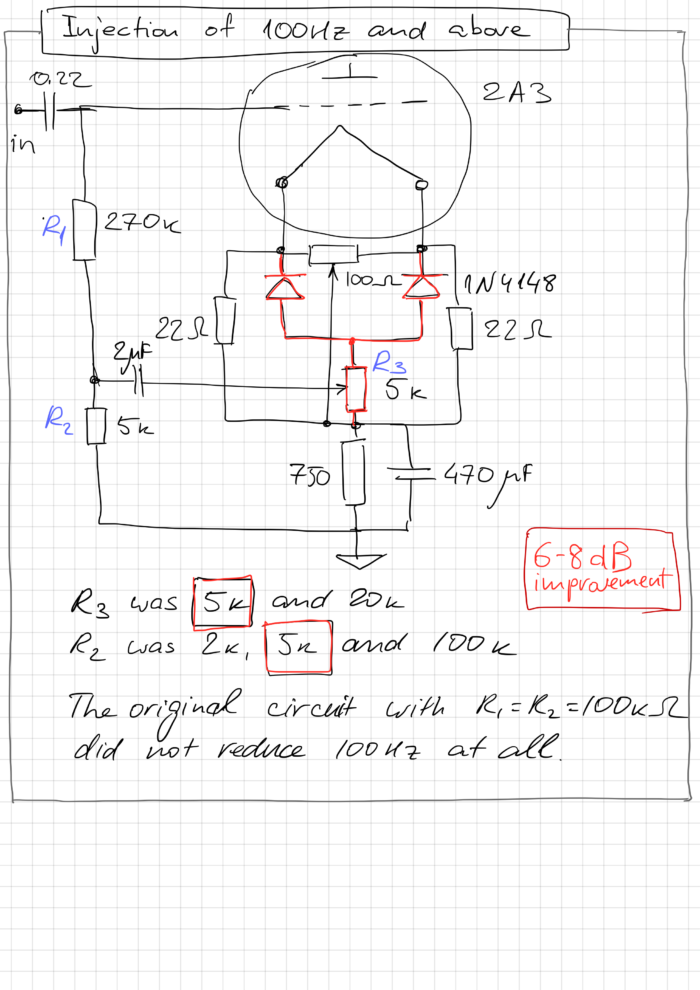 Injection of 100Hz and above
0.22
2A3
in
R1 270k
100Ω 1N4148
22Ω 22Ω
2µF
R3
5k
R2 5k
750 470µF
6-8dB
improvement
R3 was 5k and 20k
R2 was 2k, 5k and 100k
The original circuit with R1=R2=100kΩ
did not reduce 100Hz at all.